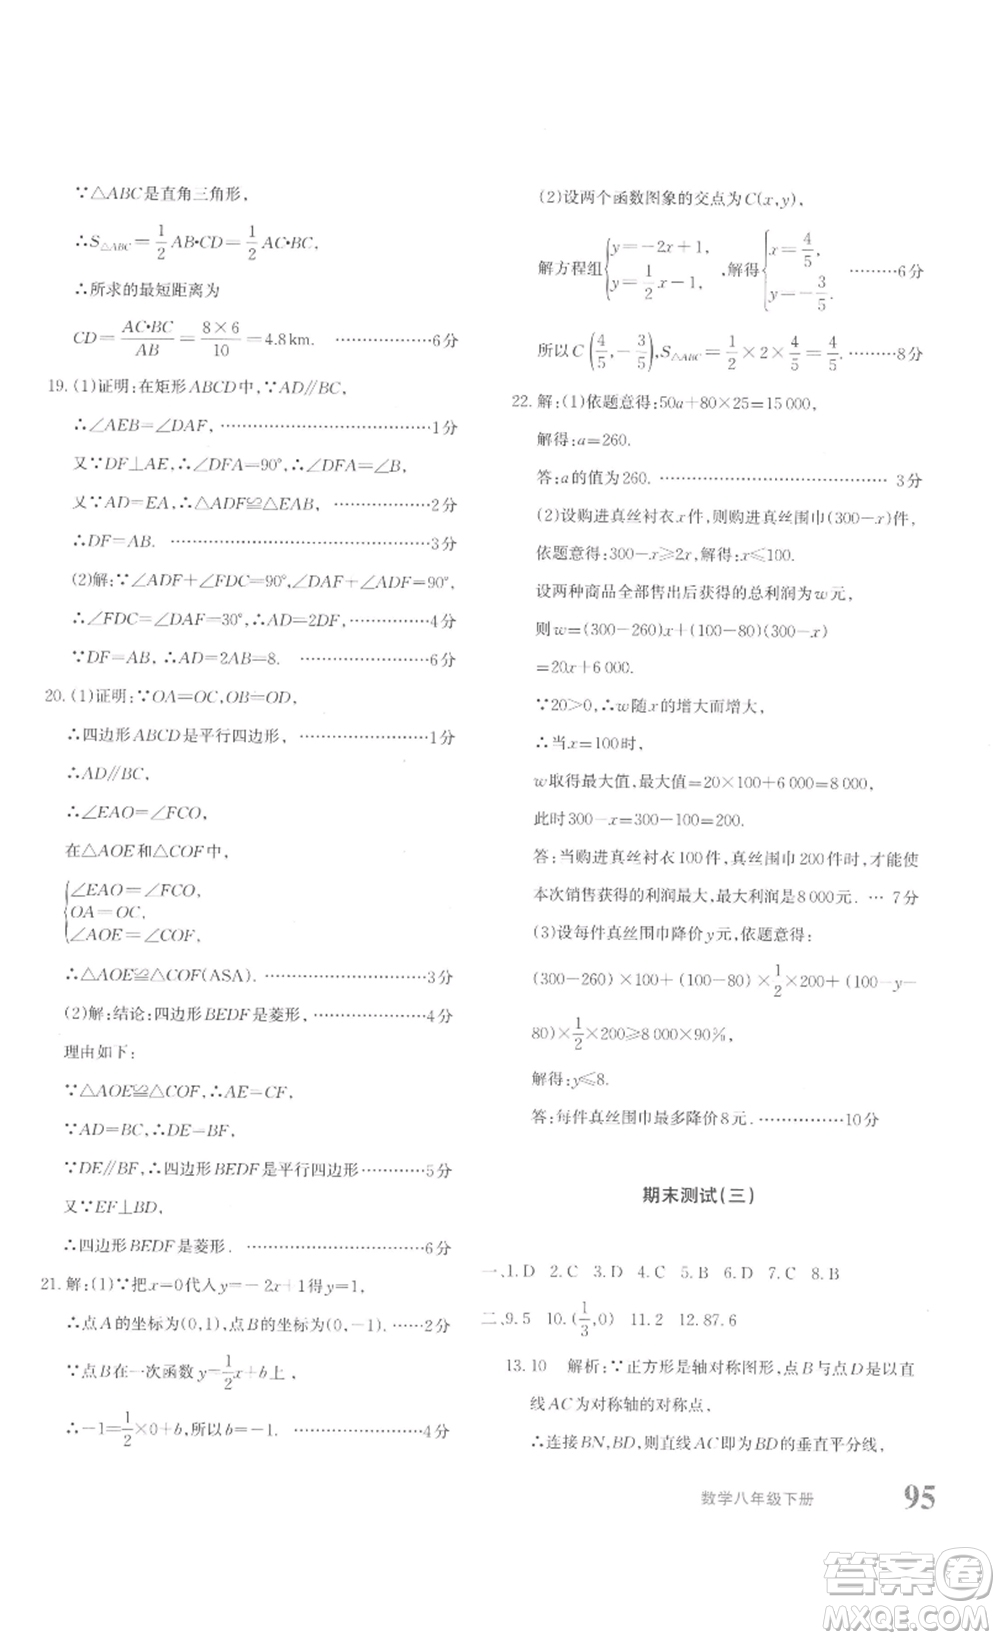 ∵△ABC是直角三角形,
∴S△ABC=1/2AB•CD=1/2AC•BC,
∴所求的最短距离为
CD=AC•BC/AB=8×6/10=4.8km. ……………6分
19.(1)证明:在矩形ABCD中,∵AD∥BC,
∴∠AEB=∠DAF, ……………1分
又∵DF⊥AE,∴∠DFA=90°,∴∠DFA=∠B,
又∵AD=EA,∴△ADF≌△EAB, ……………2分
∴DF=AB. ……………3分
(2)解:∵∠ADF+∠FDC=90°,∠DAF+∠ADF=90°,
∴∠FDC=∠DAF=30°,∴AD=2DF, ……………4分
∵DF=AB,∴AD=2AB=8. ……………6分
20.(1)证明:∵OA=OC,OB=OD,
∴四边形ABCD是平行四边形, ……………1分
∴AD∥BC,
∴∠EAO=∠FCO,
在△AOE和△COF中,
{∠EAO=∠FCO,
OA=OC,
∠AOE=∠COF,
∴△AOE≌△COF(ASA). ……………3分
(2)解:结论:四边形BEDF是菱形, ……………4分
理由如下:
∵△AOE≌△COF,∴AE=CF,
∵AD=BC,∴DE=BF,
∵DE∥BF,∴四边形BEDF是平行四边形…………5分
又∵EF⊥BD,
∴四边形BEDF是菱形. ……………6分
21.解:(1)∵把x=0代入y=-2x+1得y=1,
∴点A的坐标为(0,1),点B的坐标为(0,-1).……2分
∵点B在一次函数y=1/2x+b上,
∴-1=1/2×0+b,所以b=-1. ……………4分
(2)设两个函数图象的交点为C(x,y),
解方程组{y=-2x+1, y=1/2x-1,解得{x=4/5, y=-3/5. ………6分
所以C(4/5,-3/5),S△ABC=1/2×2×4/5=4/5.……8分
22.解:(1)依题意得:50a+80×25=15 000,
解得:a=260.
答:a的值为260. ……………3分
(2)设购进真丝衬衣x件,则购进真丝围巾(300-x)件,
依题意得:300-x≥2x,解得:x≤100.
设两种商品全部售出后获得的总利润为w元,
则w=(300-260)x+(100-80)(300-x)
=20x+6 000.
∵20>0,∴w随x的增大而增大,
∴当x=100时,
w取得最大值,最大值=20×100+6 000=8 000,
此时300-x=300-100=200.
答:当购进真丝衬衣100件,真丝围巾200件时,才能使
本次销售获得的利润最大,最大利润是8 000元. …7分
(3)设每件真丝围巾降价y元,依题意得:
(300-260)×100+(100-80)×1/2×200+(100-y-
80)×1/2×200≥8 000×90%,
解得:y≤8.
答:每件真丝围巾最多降价8元.…………10分
期末测试(三)
一、1.D 2.C 3.D 4.C 5.D 6.D 7.C 8.B
二、9.5 10.(1/3,0) 11.2 12.87.6
13.10 解析:∵正方形是轴对称图形,点B与点D是以直
线AC为对称轴的对称点,
∴连接BN,BD,则直线AC即为BD的垂直平分线,
数学八年级下册 95
答案圈
MXQE.COM